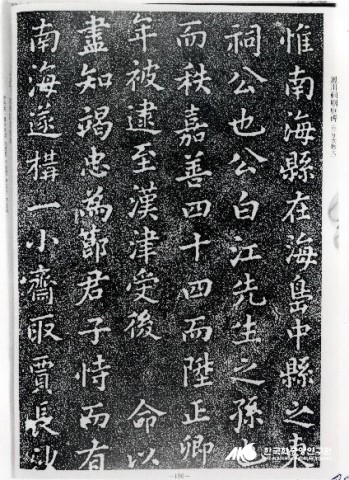 惟南海縣在海島中縣之東
祠公也公白江先生之孫
而秩嘉善四十四而陞正卿
年被逮至漢津受後 命以
盡知竭忠為鄭君子恃而有
南海遂構一小齋取賈長沙
한국학중앙연구원